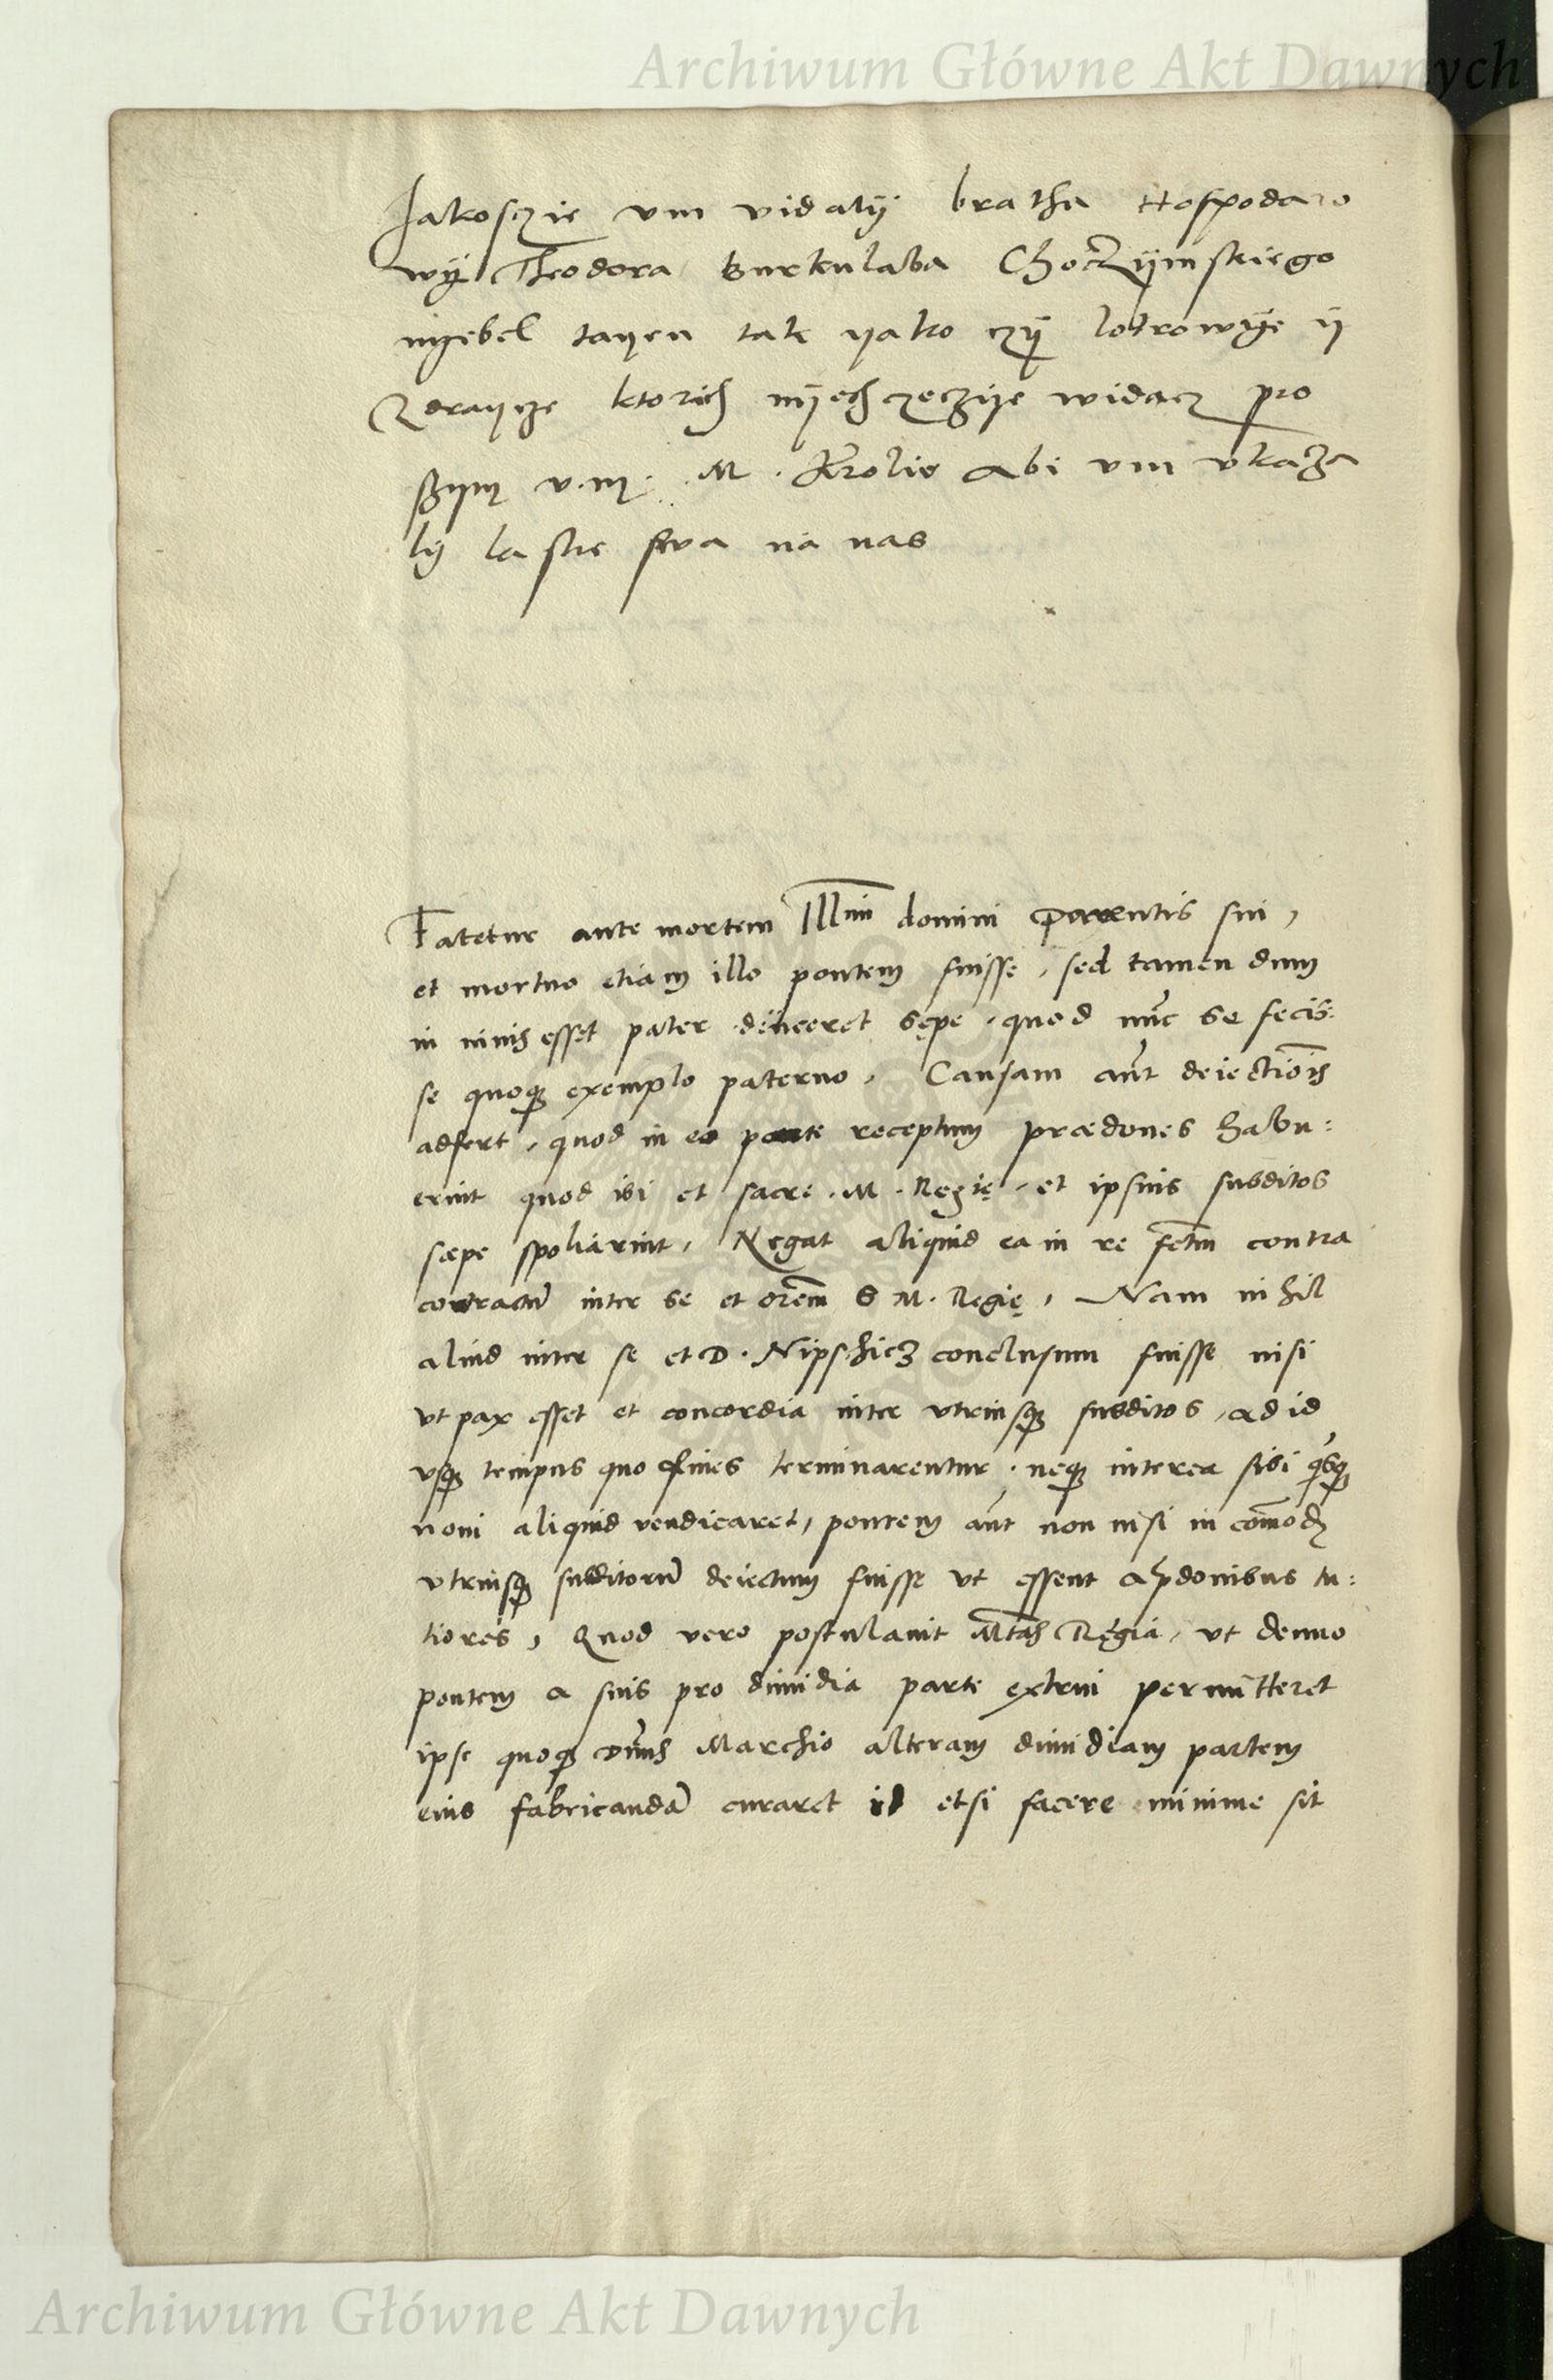 Archiwum Główne Akt Dawnych
Jakosczie vm vidaly bratha Hospodaro
wy Theodora Burkulaba Choczymskiego
nyebel tayen tak yako czy lotrowye y
Zdraycze ktorich nyechczeczye widacz pro
szym v. m. M. Krolie abi vm vkaza
ly laskie swa na nas
Fatetur ante mortem Illmi domini parentis sui,
et mortuo etiam illo pontem fuisse, sed tamen dum
in viuis esset pater deiiceret sępe, quod nūc se fecis:
se quoqȝ exemplo paterno, Causam aūt deiectiōis
adfert, quod in eo ponte receptum prædones habu:
erint quod ibi et sacre. M. Regię, et ipsius subditos
sæpe spoliarint, Negat aliquid ea in re fctm contra
contractū inter se et orem S M. Regię, Nam nihil
aliud inter se et D. Nipschicz conclusum fuisse nisi
vt pax esset et concordia inter vtriusqȝ subditos, ad id
vsqȝ tempus quo fines terminarentur, neqȝ interea sibi qsqȝ
noui aliquid vendicaret, pontem aūt non nisi in cōmodū
vtriusqȝ subditorū deiectum fuisse vt essent a pdonibus tu:
tiores, Quod vero postulauit Mtas Regia, vt denuo
pontem a suis pro dimidia parte extrui permitteret
ipse quoqȝ Dnus Marchio alteram dimidiam partem
eius fabricandā curaret id etsi facere minime sit
Archiwum Główne Akt Dawnych